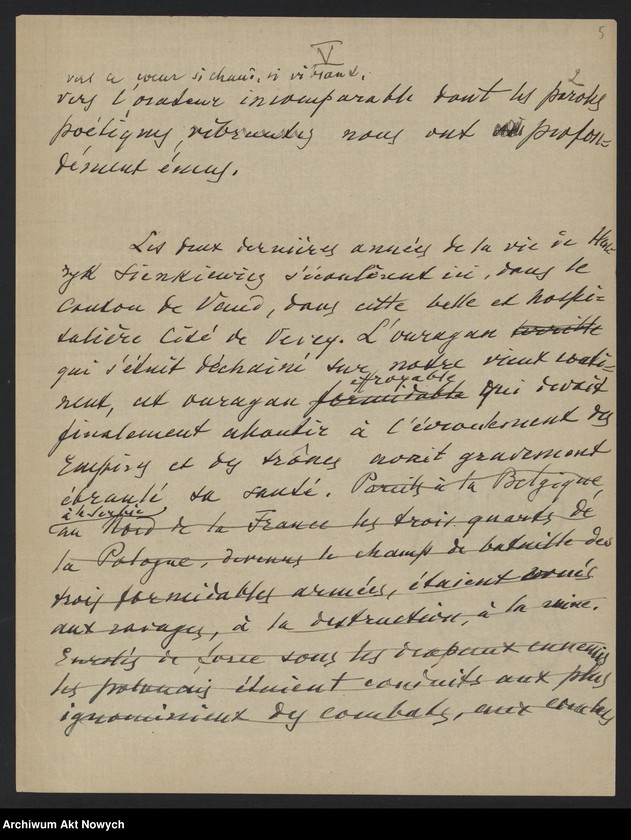 5
V
vers ce cœur si chaud, si vibrant,
2
vers l'orateur incomparable dont les paroles
poétiques, vibrantes nous ont profon-
dément émus.
Les deux dernières années de la vie de Hen-
ryk Sienkiewicz s'écoulèrent ici, dans le
Canton de Vaud, dans cette belle et hospi-
talière Cité de Vevey. L'ouragan terrible
qui s'était déchainé sur notre vieux conti-
effroyable
nent, cet ouragan formidable qui devait
finalement aboutir à l'écroulement des
Empires et des trônes avait gravement
ébranlé sa santé. Pareils à la Belgique
à la Serbie
au Nord de la France les trois quarts de
la Pologne, devenus le champ de bataille des
trois formidables armées, étaient voués
aux ravages, à la destruction, à la ruine.
Enrolés de force sous les drapeaux ennemis
les polonais étaient conduits aux plus
ignominieux des combats, aux combats
Archiwum Akt Nowych